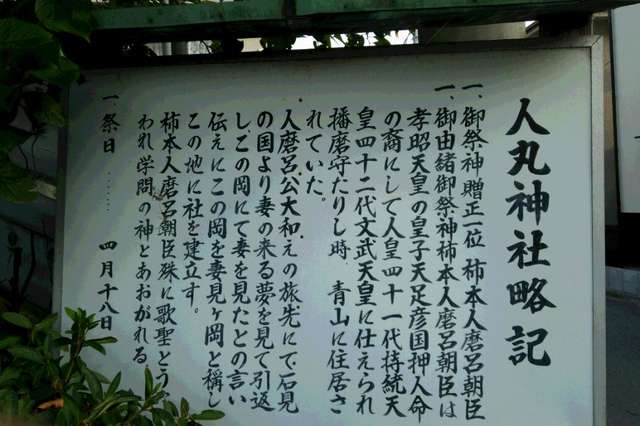 人丸神社略記
一、御祭神贈正一位 柿本人磨呂朝臣
一、御由緒御祭神柿本人磨呂朝臣は
孝昭天皇の皇子天足彦国押人命
の裔にして人皇四十一代持統天
皇四十二代文武天皇に仕えられ
播磨守たりし時、青山に住居さ
れていた。
人磨呂公大和えの旅先にて石見
の国より妻の来る夢を見て引返
しこの岡にて妻を見たとの言い
伝えにこの岡を妻見ヶ岡と称し
この地に社を建立す。
柿本人磨呂朝臣殊に歌聖とう
われ学問の神とあおがれる
一、祭日……四月十八日